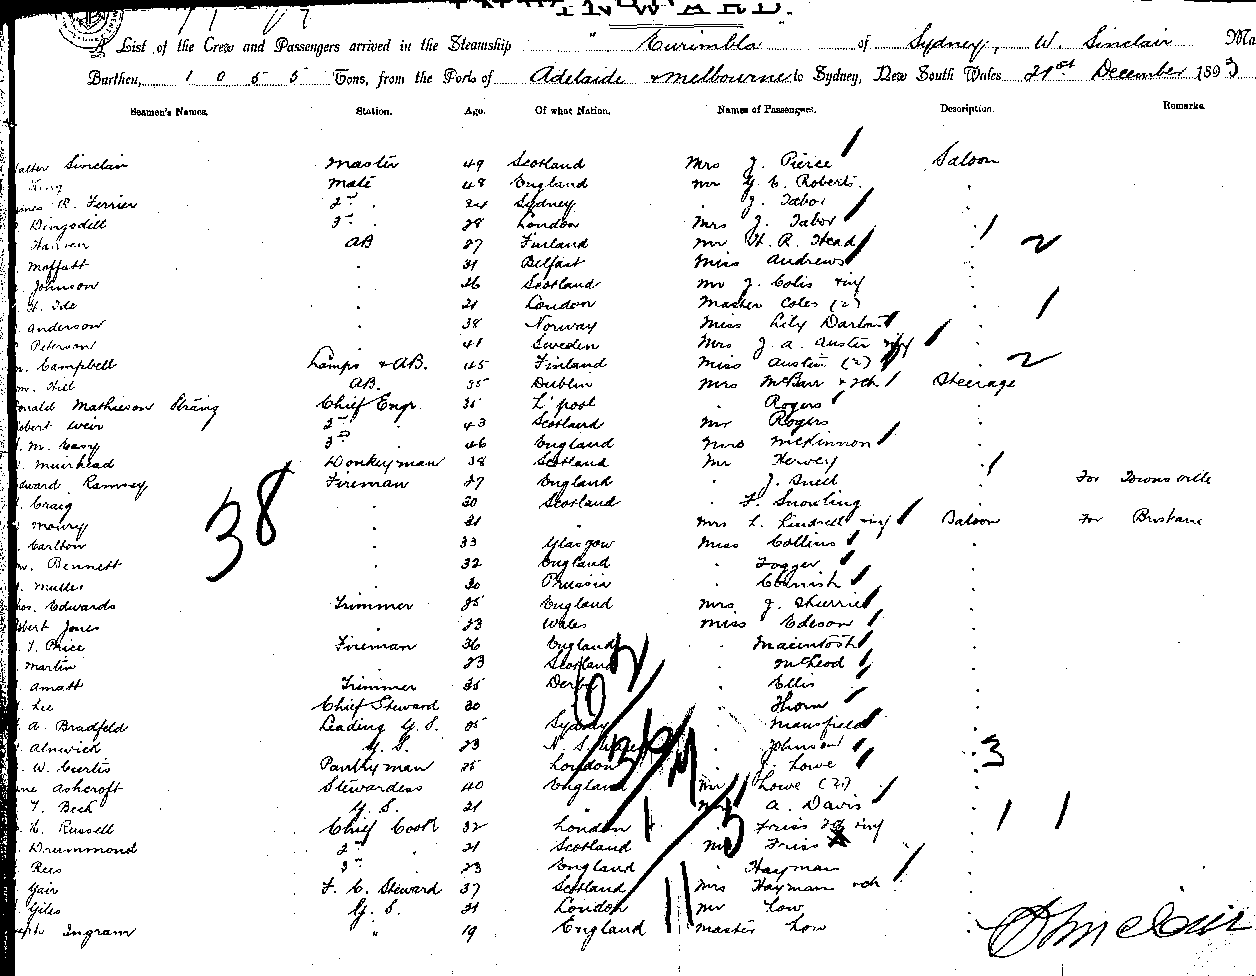 INWARD.
A List of the Crew and Passengers arrived in the Steamship " Curimbla of Sydney, W. Sinclair Ma
Burthen, 1055 Tons, from the Ports of Adelaide & Melbourne to Sydney, New South Wales 21st December 1893
Seamen's Names. Station. Age. Of what Nation. Names of Passengers. Description. Remarks.
alter Sinclair Master 49 Scotland Mrs J. Pierce Saloon
King Mate 48 England Mr G. E. Roberts
mes R. Ferrier 2nd 24 Sydney J. Tabor
Dingsdill 3rd 28 London Mrs J. Tabor
Hansen AB 27 Finland Mr H. R. Head 2
Moffatt 31 Belfast Miss Andrews
Johnson 26 Scotland Mr J. Colis & inf
H. Ide 21 London Master Coles (2)
Anderson 38 Norway Miss Lily
Peterson 41 Sweden Mrs J. A. Auster & inf
Campbell Lamps & AB. 45 Finland Miss Austin (2) 2
m. Hill AB. 35 Dublin Mrs McBarr & 2ch Steerage
onald Mathieson Strang Chief Engr. 35 L'pool Rogers
obert Weir 2nd 43 Scotland Mr Rogers
M. Casy 3rd 46 England Miss McKinnon
Muirhead Donkeyman 38 Scotland Mr Hervey
dward Ramsey Fireman 27 England J. Snell For Townsville
Craig 30 Scotland F. Snowling
Moury 21 " Mrs L. Lindrell & inf Saloon For Brisbane
Carlton 33 Glasgow Miss Collins
Bennett 32 England Fogger
Muller 30 Prussia Cornish
hos. Edwards Trimmer 25 England Mrs J. Sherrie
obert Jones 23 Wales Miss Edeson
T. Price Fireman 36 England Macintosh
Martin 23 Scotland McLeod
Amatt Trimmer 35 Derby Ellis
Lee Chief Steward 30 Thorn
A. Bradfeld Leading G. S. 25 Sydney Mansfield
Alnwick G. S. 23 Johnson 3
W. Curtis Pantryman 25 London J. Lowe
ne Ashcroft Stewardess 40 England Mr Lowe (2)
T. Beck G. S. 21 " A. Davis
H. Russell Chief Cook 32 London Friss & inf
Drummond 2nd 21 Scotland Friss
Rees 3rd 23 England Hayman
Gair F. C. Steward 37 Scotland Mrs Hayman & ch
Giles G. S. 31 London Mr Low
eph Ingram " 19 England Master Low
38